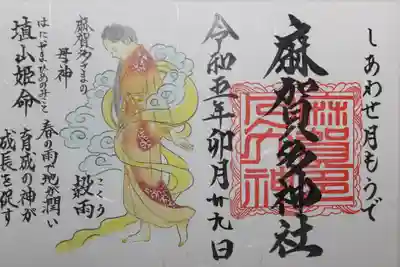 しあわせ月もうで
麻賀多神社
令和五年卯月廿九日
麻賀多さまの
母神
穀雨
こくう
春の雨、地が潤い
育成の神が
成長を促す
はにやまひめのみこと
埴山姫命